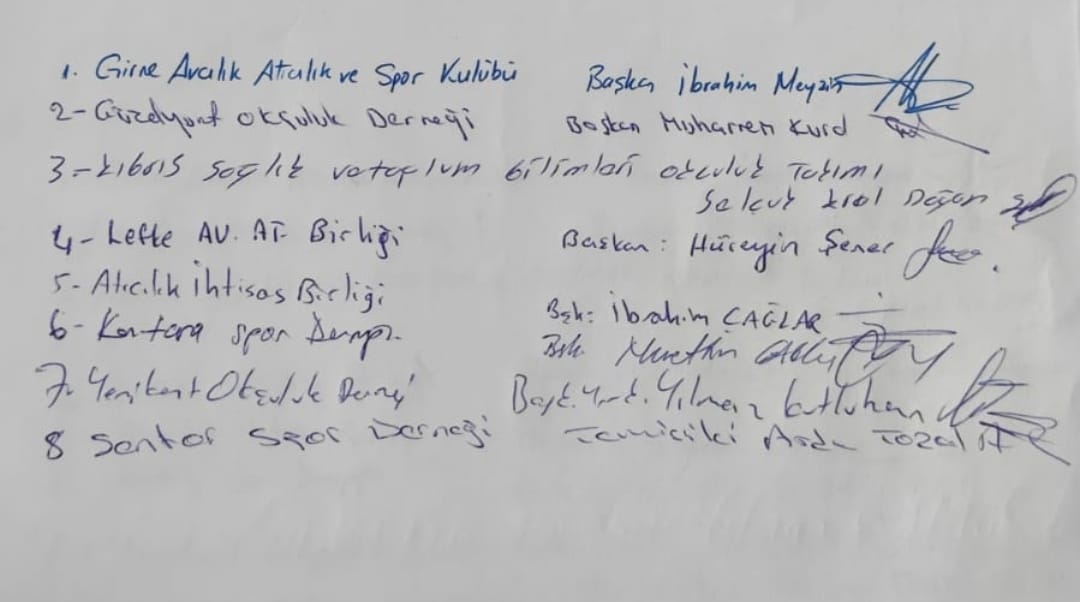 1. Girne Avcılık Atıcılık ve Spor Kulübü Başkan İbrahim Meyzin
2- Güzelyurt Okçuluk Derneği Başkan Muharrem Kurd
3- Kıbrıs Sağlık ve toplum bilimleri okculuk Takımı
Selçuk Doğan
4- Lefke AV. AT. Birliği Başkan: Hüseyin Şener
5- Atıcılık İhtisas Birliği Bşk: İbrahim ÇAĞLAR
6- Kantara Spor Bşk.
7. Yenikent Okçuluk Yılmaz Kutluhan
8 Santor Spor Derneği Temsilcisi Arda